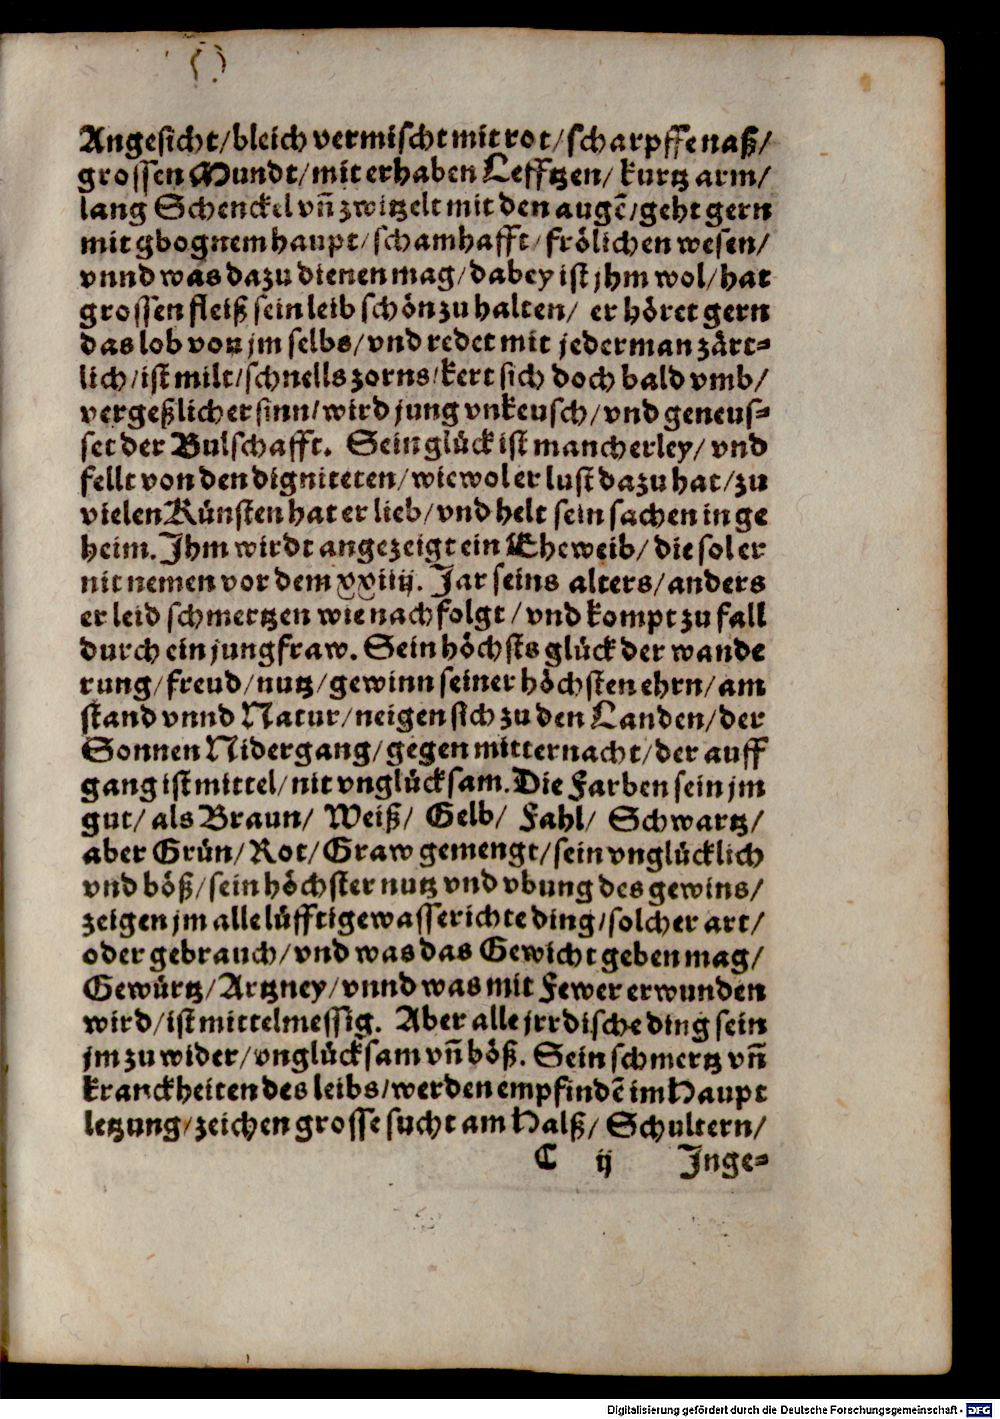 Angesicht/bleich vermischt mit rot/scharpffe naß/
grossen Mundt/mit erhaben Lefftzen/ kurtz arm/
lang Schenckel vñ zwitzelt mit den augẽ/geht gern
mit gbognem haupt/schamhafft/frölichen wesen/
vnnd was dazu dienen mag/dabey ist jhm wol/hat
grossen fleiß sein leib schön zu halten/ er höret gern
das lob von jm selbs/vnd redet mit jederman zärt-
lich/ist milt/schnells zorns/kert sich doch bald vmb/
vergeßlicher sinn/wird jung vnkeusch/vnd geneus-
set der Bulschafft. Sein glück ist mancherley/vnd
fellt von den digniteten/wiewol er lust dazu hat/zu
vielen Künsten hat er lieb/vnd helt sein sachen in ge
heim. Jhm wirdt angezeigt ein Eheweib/die sol er
nit nemen vor dem xxiiij. Jar seins alters/anders
er leid schmertzen wie nachfolgt/vnd kompt zu fall
durch ein jungfraw. Sein höchsts glück der wande
rung/freud/nutz/gewinn seiner höchsten ehrn/am
stand vnnd Natur/neigen sich zu den Landen/der
Sonnen Nidergang/gegen mitternacht/der auff
gang ist mittel/nit vnglücksam. Die Farben sein jm
gut/als Braun/ Weiß/ Gelb/ Fahl/ Schwartz/
aber Grün/Rot/Graw gemengt/sein vnglücklich
vnd böß/sein höchster nutz vnd vbung des gewins/
zeigen jm alle lüfftige wasserichte ding/solcher art/
oder gebrauch/vnd was das Gewicht geben mag/
Gewürtz/Artzney/vnnd was mit Fewer erwunden
wird/ist mittelmessig. Aber alle jrrdische ding sein
jm zu wider/vnglücksam vñ böß. Sein schmertz vñ
kranckheiten des leibs/werden empfindẽ im Haupt
letzung/zeichen grosse sucht am Halß/ Schultern/
C ij Jnge-
Digitalisierung gefördert durch die Deutsche Forschungsgemeinschaft - DFG